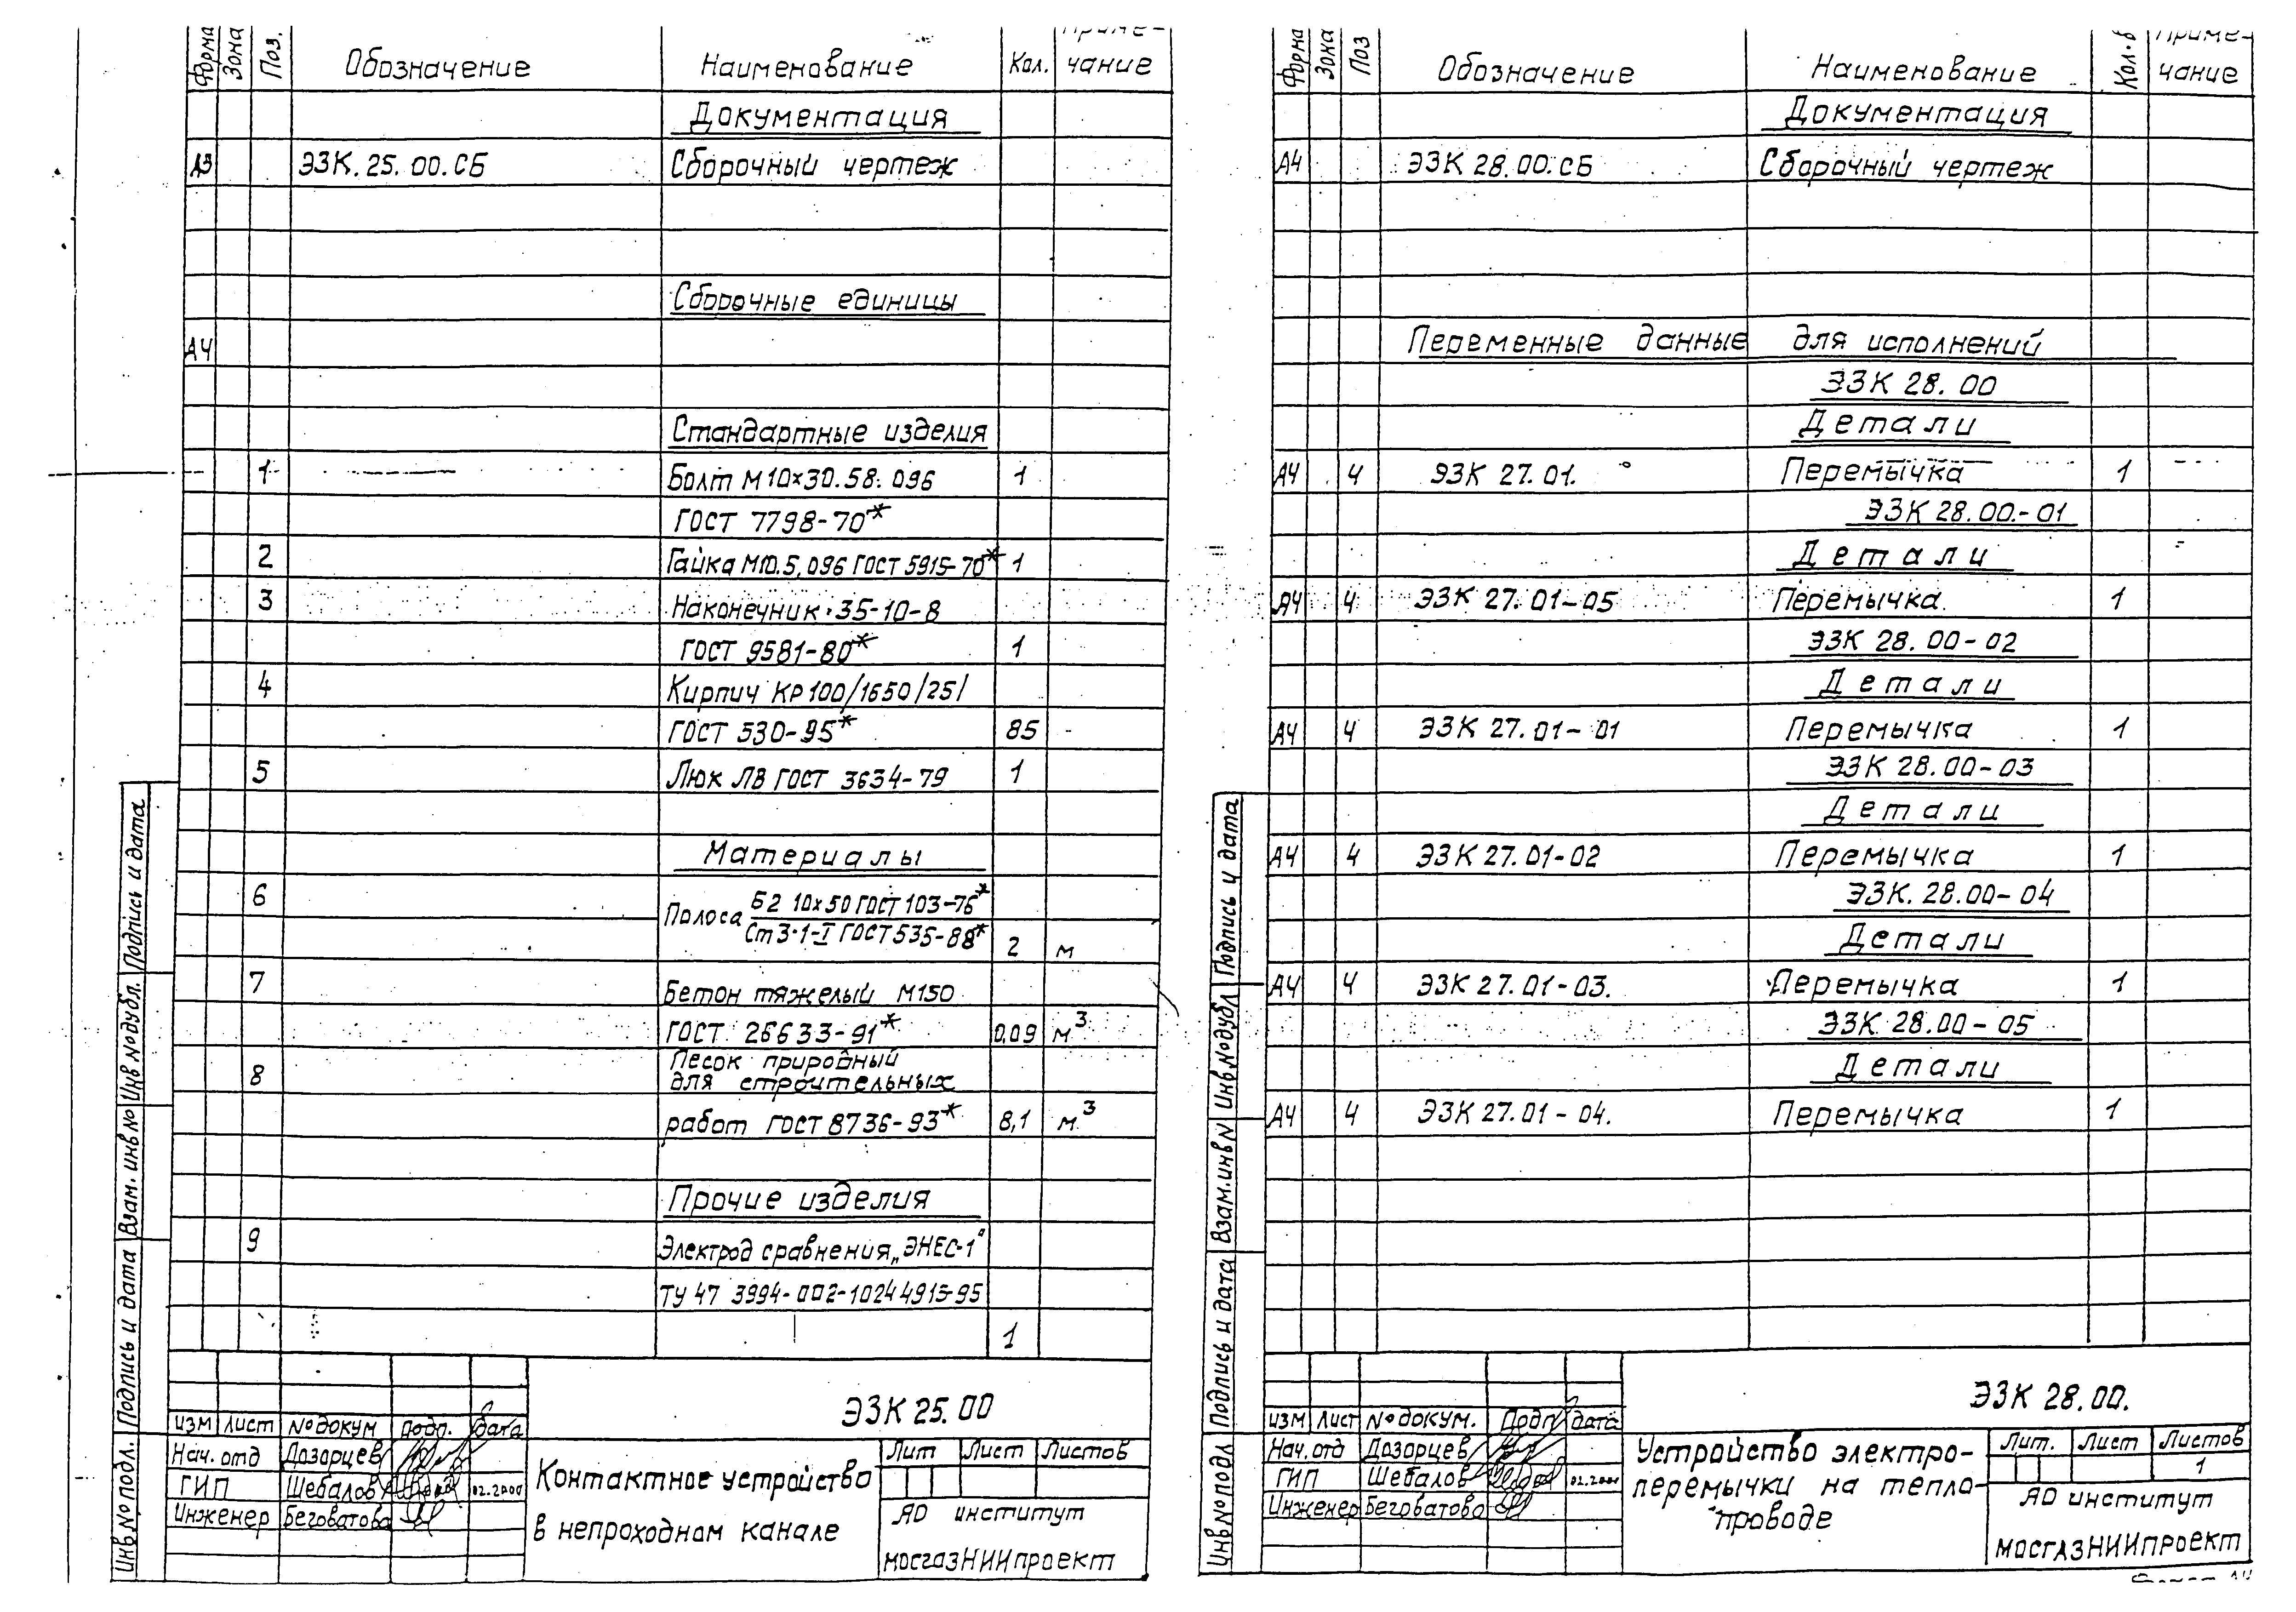 Форма Зона Поз. Обозначение Наименование Кол. Примечание
Документация
А3 ЭЗК.25.00.СБ Сборочный чертеж
Сборочные единицы
А4
Стандартные изделия
1 Болт М10х30.58.096 1
ГОСТ 7798-70*
2 Гайка М10.5.096 ГОСТ 5915-70* 1
3 Наконечник 35-10-8
ГОСТ 9581-80* 1
4 Кирпич КР100/1650/25/
ГОСТ 530-95* 85
5 Люк ЛВ ГОСТ 3634-79 1
Материалы
6 Полоса Б2 10х50 ГОСТ 103-76*
Ст3-1-I ГОСТ 535-88* 2 м
7 Бетон тяжелый М150
ГОСТ 26633-91* 0,09 м³
8 Песок природный
для строительных
работ ГОСТ 8736-93* 8,1 м³
Прочие изделия
9 Электрод сравнения „ЭНЕС-1"
ТУ 47 3994-002-10244915-95
1
ЭЗК 25.00
изм Лист № докум Подп. дата
Нач. отд Дозорцев
ГИП Шебалов 02.2001
Инженер Беговатова
Контактное устройство
в непроходном канале
Лит Лист Листов
ЯО институт
мосгазНИИпроект
Подпись и дата
Инв № дубл.
Взам. инв №
Подпись и дата
Инв № подл.
Форма Зона Поз Обозначение Наименование Кол.в Примечание
Документация
А4 ЭЗК 28.00.СБ Сборочный чертеж
Переменные данные для исполнений
ЭЗК 28.00
Детали
А4 4 ЭЗК 27.01. Перемычка 1
ЭЗК 28.00.-01
Детали
А4 4 ЭЗК 27.01-05 Перемычка 1
ЭЗК 28.00-02
Детали
А4 4 ЭЗК 27.01-01 Перемычка 1
ЭЗК 28.00-03
Детали
А4 4 ЭЗК 27.01-02 Перемычка 1
ЭЗК. 28.00-04
Детали
А4 4 ЭЗК 27.01-03. Перемычка 1
ЭЗК 28.00-05
Детали
А4 4 ЭЗК 27.01-04. Перемычка 1
ЭЗК 28.00.
изм Лист № докум. Подп дата
Нач. отд Дозорцев
ГИП Шебалов 02.2001
Инженер Беговатова
Устройство электро-
перемычки на тепло-
проводе
Лит. Лист Листов
1
ЯО институт
МОСГАЗНИИпроект
Подпись и дата
Инв № дубл
Взам. инв N
Подпись и дата
Инв № подл